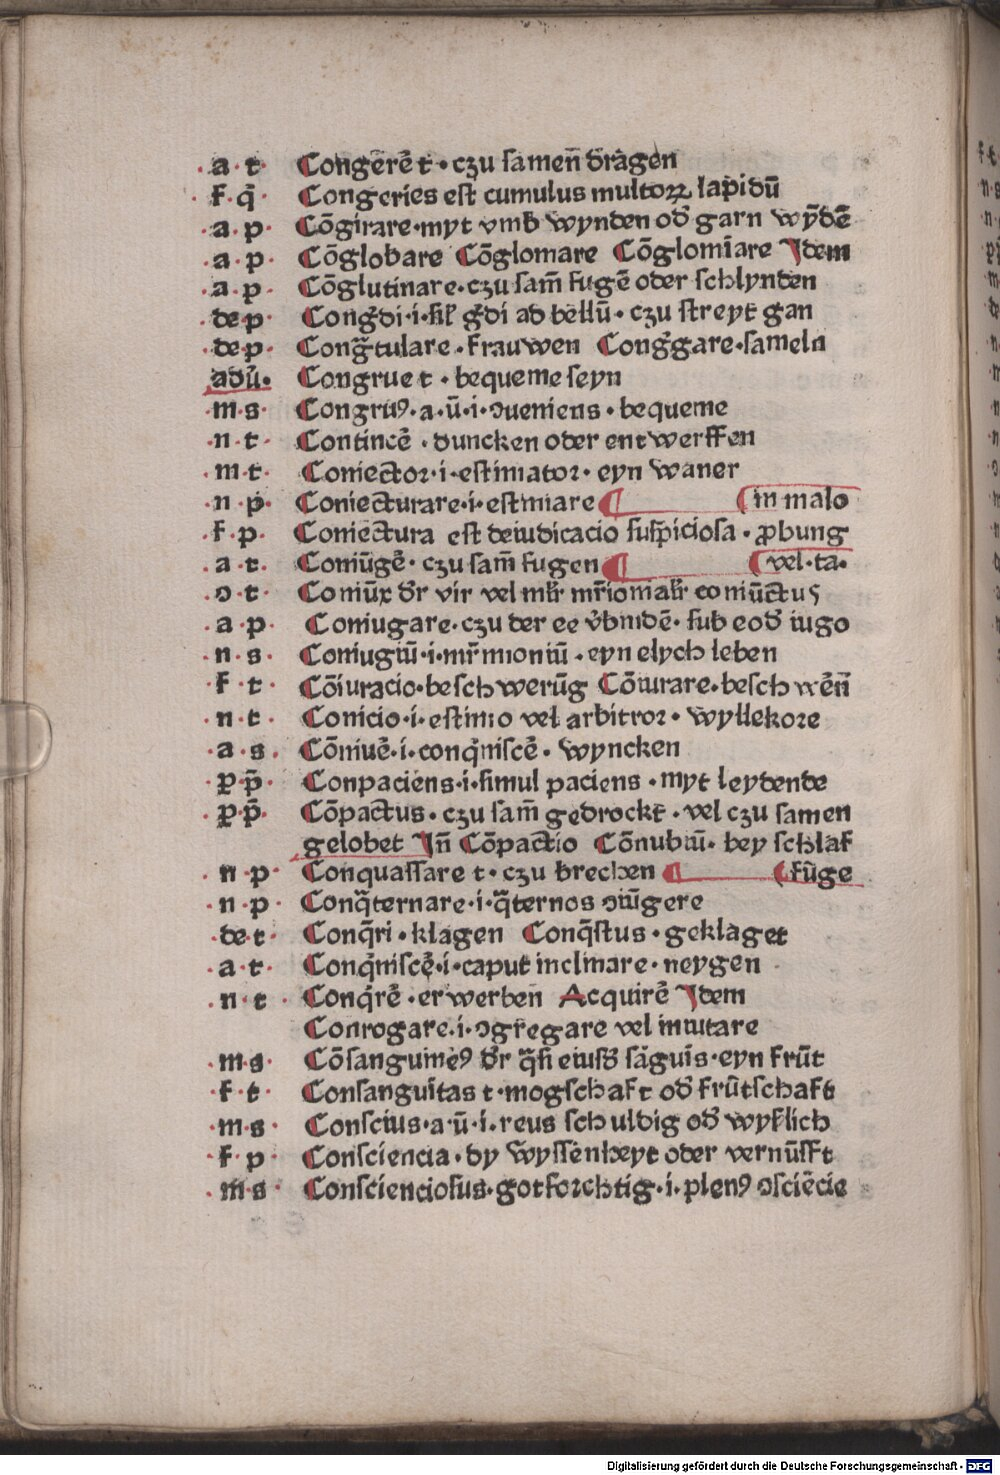 ·a·t· Congerē t·czu samen̄ dragen
·f·q̄· Congeries est cumulus multoꝝ lapidū
·a·p· Cōgirare·myt vmb wynden od̄ garn wȳdē
·a·p· Cōglobare Cōglomare Cōglomīare Idem
·a·p· Cōglutinare·czu sam̄ fugē oder schlynden
·de·p· Congdi·i·sil gdi ad bellū·czu streyt gan
·de·p· Congtulare·frauwen Conggare·sameln
adū· Congrue t·bequeme seyn
·m·s· Congruꝰ·a·ū·i·ɔueniens·bequeme
·n·t· Contincē·duncken oder entwerffen
·m·t· Coniector·i·estimator·eyn waner
·n·p· Coniecturare·i·estimare in malo
·f·p· Coniectura est deiudicacio suspiciosa·ꝓbung
·a·t· Coniūgē·czu sam̄ fugen vel·ta·
·ɔ·t· Coniūx dr̄ vir vel coniūctus
·a·p· Coniugare·czu der ee v̄bindē·sub eod̄ iugo
·n·s· Coniugiū·i·mr̄imoniū·eyn elych leben
·f·t· Cōiuracio·beschwerūg Cōiurare·beschwēn̄
·n·t· Conicio·i·estimo vel arbitror·wyllekore
·a·s· Cōniuē·i·conq̄niscē·wyncken
·p·p̄· Conpaciens·i·simul paciens·myt leydende
·p·p̄· Cōpactus·czu sam̄ gedrockt·vel czu samen
gelobet In̄ Cōpactio Cōnubiū·bey schlaf
·n·p· Conquassare t·czu brechen fūge
·n·p· Conq̄ternare·i·q̄ternos ɔiūgere
·de·t· Conq̄ri·klagen Conq̄stus·geklaget
·a·t· Conq̄niscē·i·caput inclinare·neygen
·n·t· Conq̄rē·erwerben̄ Acquirē Idem
Conrogare·i·ɔgregare vel inuitare
·m·s· Cōsanguineꝰ dr̄ q̄si eiusd̄ sāguīs·eyn frūt
·f·t· Consanguītas t·mogschaft od̄ frūtschaft
·m·s· Conscius·a·ū·i·reus schuldig od̄ wyslich
·f·p· Consciencia·dy wyssenheyt oder vernūfft
·m·s· Conscienciosus·gotforchtig·i·plenꝰ ɔsciēcie
Digitalisierung gefördert durch die Deutsche Forschungsgemeinschaft - DFG